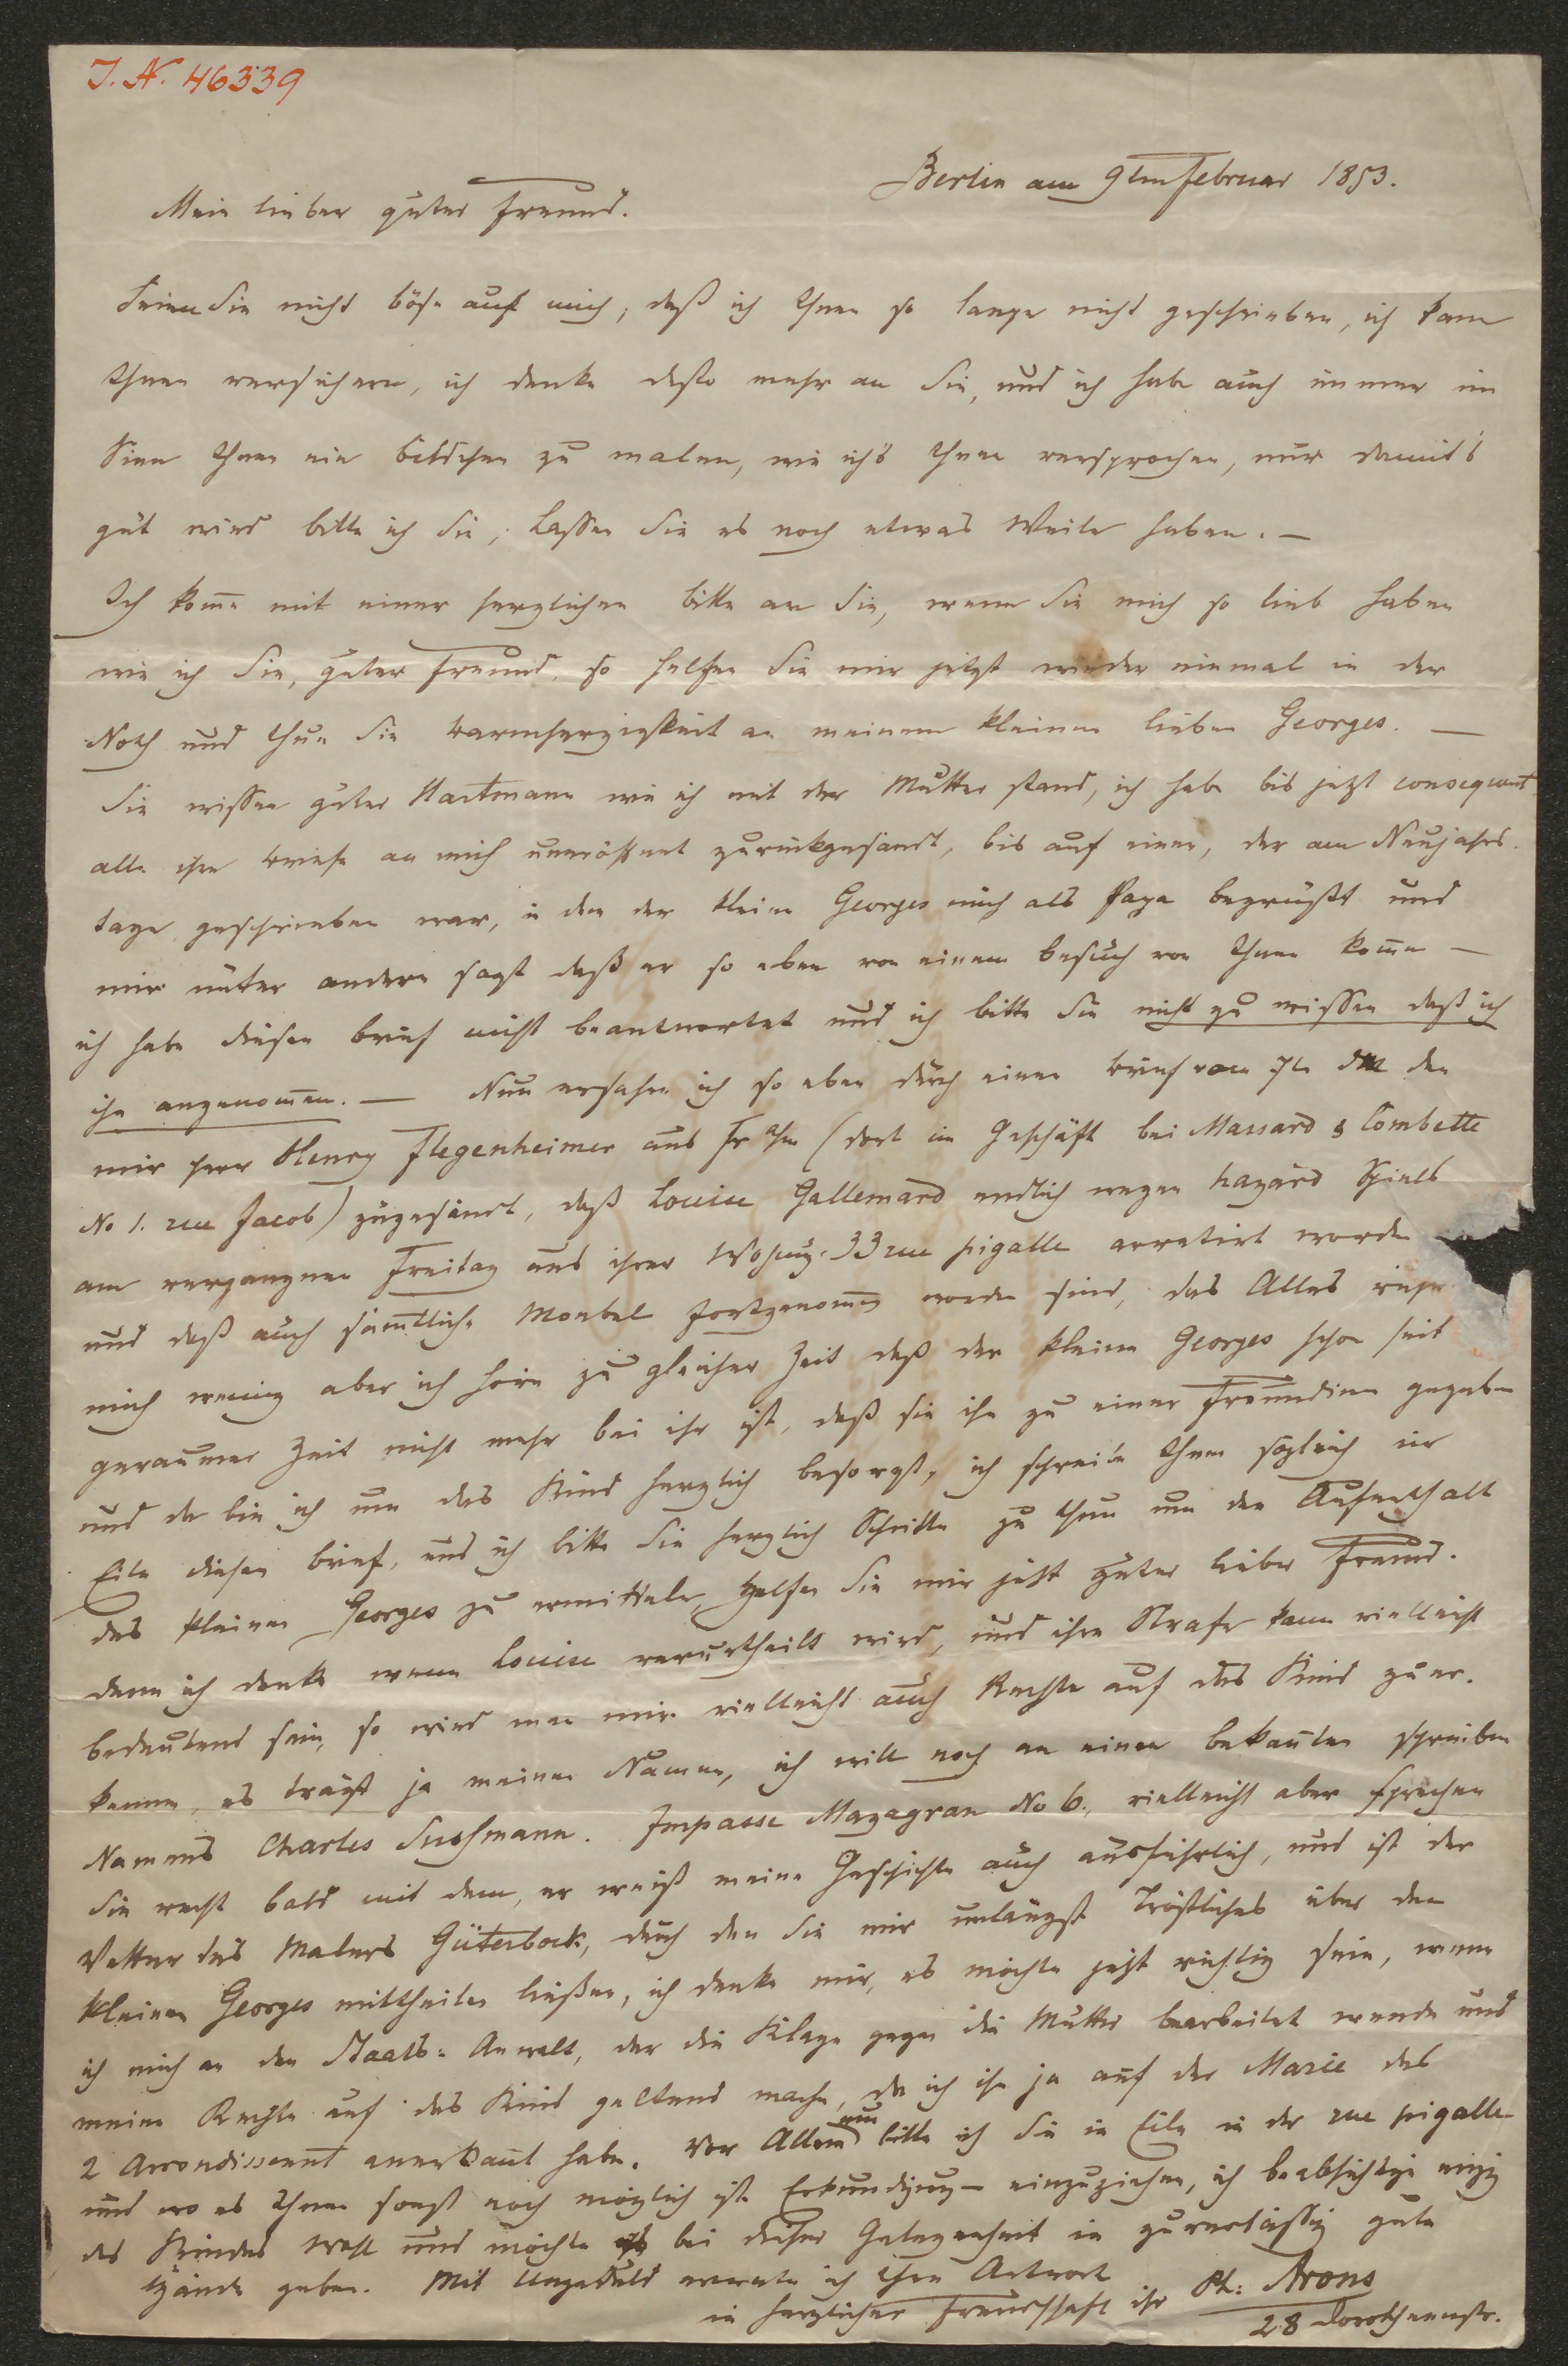 I. N. 46339
Berlin am 9ten Februar 1853.
Mein lieber guter Freund.
Seien Sie nicht böse auf mich, daß ich Ihnen so lange nicht geschrieben, ich kann
Ihnen versichern, ich denke desto mehr an Sie, und ich habe auch immer im
Sinn Ihnen ein Bildchen zu malen, wie ich's Ihnen versprochen, nur damit's
gut wird bitte ich Sie, lassen Sie es noch etwas Weile haben. —
Ich kom̅e mit einer herzlichen Bitte an Sie, wenn Sie mich so lieb haben
wie ich Sie, guter Freund, so helfen Sie mir jetzt wieder einmal in der
Noth und thun Sie Barmherzigkeit an meinem kleinen lieben Georges. —
Sie wissen guter Hartmann wie ich mit der Mutter stand, ich habe bis jetzt consequent
alle ihre Briefe an mich uneröffnet zurückgesandt, bis auf einen, der am Neujahrs-
tage geschrieben war, in dem der kleine Georges mich als Papa begrüßt und
mir unter andern sagt daß er so eben von einem Besuch von Ihnen kom̅e —
ich habe diesen Brief nicht beantwortet und ich bitte Sie nicht zu wissen daß ich
ihn angenom̅en. — Nun erfahre ich so eben durch einen Brief vom 7ten den
mir Herr Henry Flegenheimer aus (dort im Geschäft bei Massard & Combette
No 1. rue Jacob) zugesandt, daß Louise Gallemard endlich wegen hazard Spiels
am vergangnen Freitag aus ihrer Wohnung 33 rue pigalle arretirt worden
und daß auch sämtliche Moebel fortgenom̅en worden sind, das Alles
mich wenig aber ich höre zu gleicher Zeit daß der kleine Georges schon seit
geraumer Zeit nicht mehr bei ihr ist, daß sie ihn zu einer Freundinn gegeben
und da bin ich um das Kind herzlich besorgt, ich schreibe Ihnen sogleich in
Eile diesen Brief, und ich bitte Sie herzlich Schritte zu thun um den Aufenthalt
des kleinen Georges zu ermitteln, helfen Sie mir jetzt guter lieber Freund.
denn ich denke wenn Louise verurtheilt wird, und ihre Strafe kann vielleicht
bedeutend sein, so wird man mir vielleicht auch Rechte auf das Kind zuer-
kennen, es trägt ja meinen Namen, ich will noch an einen Bekan̅ten schreiben
Namens Charles Sussmann. Impasse Mazagran No 6., vielleicht aber sprechen
Sie recht bald mit dem, er weiß meine Geschichte auch ausführlich, und ist der
Vetter des Malers Güterbock, durch den Sie mir unlängst Tröstliches über den
kleinen Georges mittheilen ließen, ich denke mir, es möchte jetzt richtig sein, wenn
ich mich an den Staats-Anwalt, der die Klage gegen die Mutter bearbeitet wende und
meine Rechte auf das Kind geltend mache, da ich ihn ja auf der Marie des
2 Arrondissemt anerkan̅t habe. Vor Allem nun bitte ich Sie in Eile in der rue pigalle
und wo es Ihnen sonst noch möglich ist Erkundigung einzuziehen, ich beabsichtige einzig
des Kindes Wohl und möchte es bei dieser Gelegenheit in zuverlässig gute
Hände geben. Mit Ungeduld erwarte ich Ihre Antwort
in herzlicher Freundschaft ihr Ph: Arons
28 Dorotheenstr.